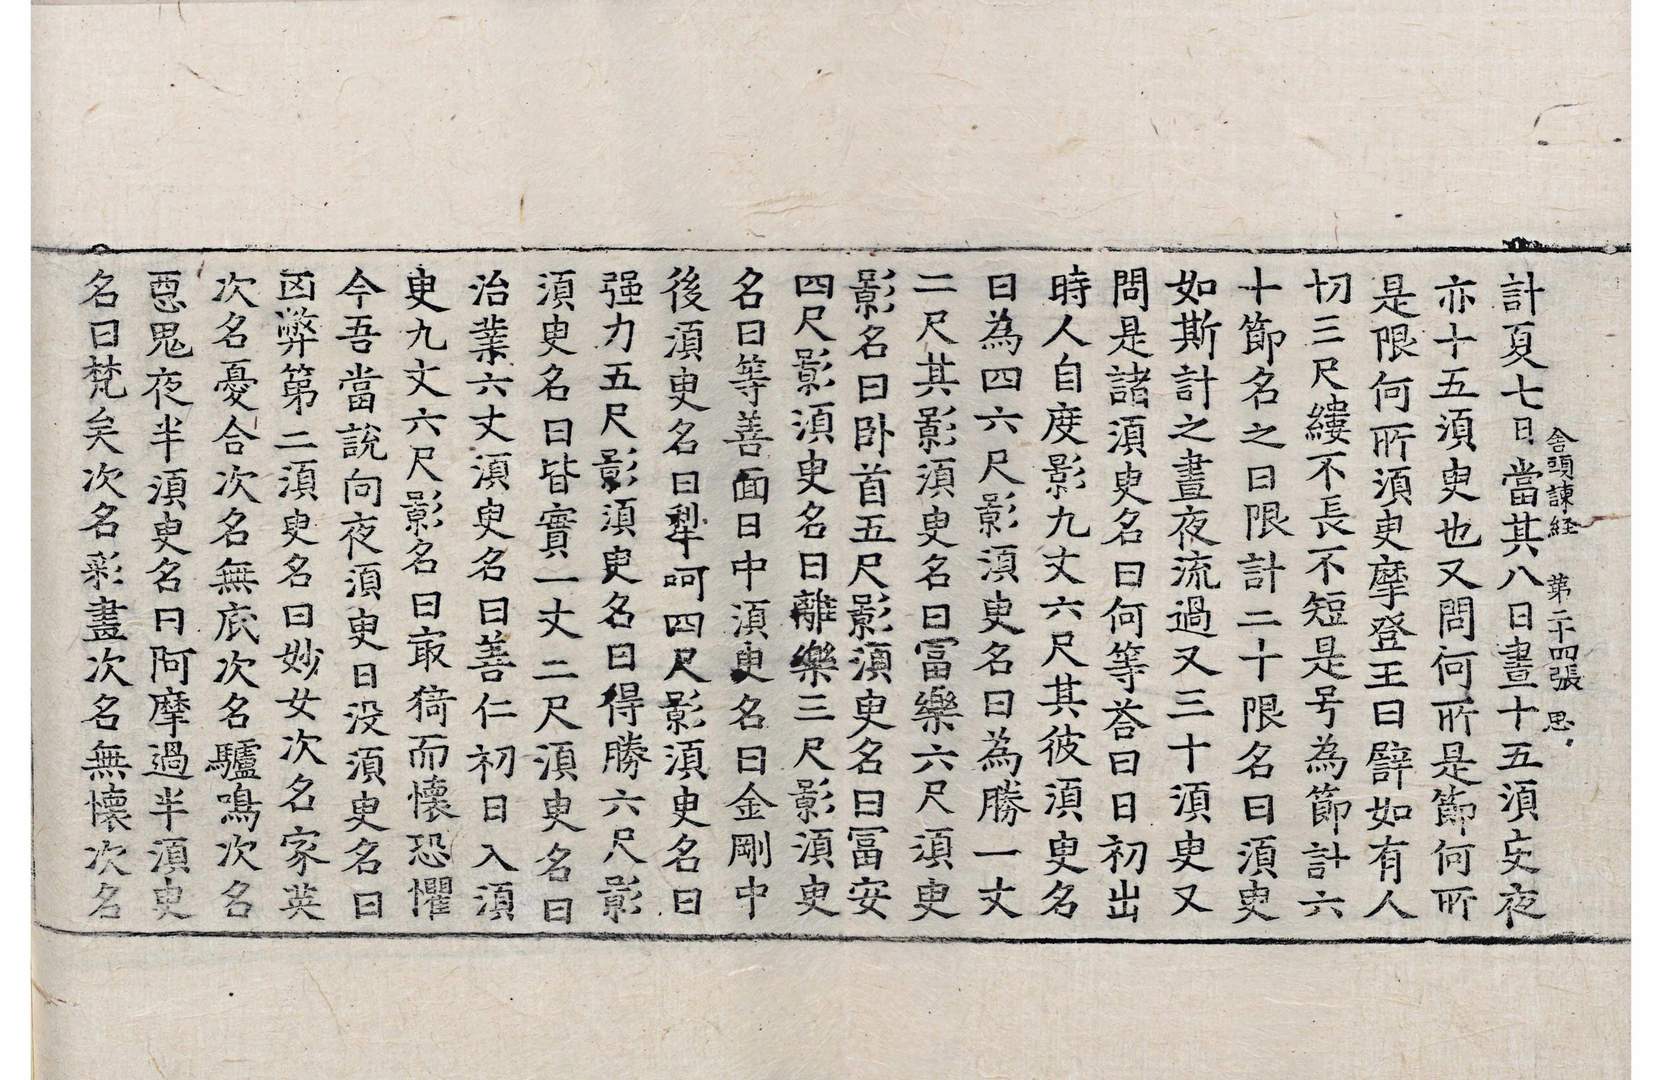 舍頭諫経 第二十四張 思
計夏七日當其八日晝十五須臾夜
亦十五須臾也又問何所是節何所
是限何所須臾摩登王曰譬如有人
切三尺縷不長不短是号為節計六
十節名之曰限計二十限名曰須臾
如斯計之晝夜流過又三十須臾又
問是諸須臾名曰何等荅曰日初出
時人自度影九丈六尺其彼須臾名
曰為四六尺影須臾名曰為勝一丈
二尺其影須臾名曰冨樂六尺須臾
影名曰卧首五尺影須臾名曰冨安
四尺影須臾名曰離樂三尺影須臾
名曰等善面日中須臾名曰金剛中
後須臾名曰犁呵四尺影須臾名曰
强力五尺影須臾名曰得勝六尺影
須臾名曰皆實一丈二尺須臾名曰
治業六丈須臾名曰善仁初日入須
臾九丈六尺影名曰㝡猗而懷恐懼
今吾當說向夜須臾日没須臾名曰
凶弊第二須臾名曰妙女次名家英
次名憂合次名無底次名驢鳴次名
惡鬼夜半須臾名曰阿摩過半須臾
名曰梵矣次名彩畫次名無懷次名